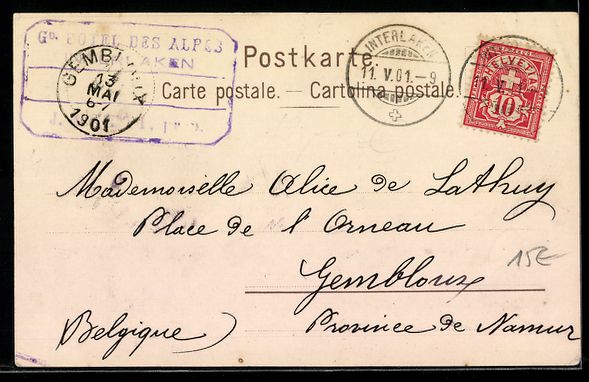 Gd HOTEL DES ALPES
LAKEN
J.
Postkarte.
Carte postale. — Cartolina postale.
GEMBLOUX
13
MAI
6-7
1901
INTERLAKEN
11. V. 01. - 9
HELVETIA
10
V.
Mademoiselle Alice de Lathuy
Place de l'Orneau
Gembloux
15€
Belgique) Province de Namur